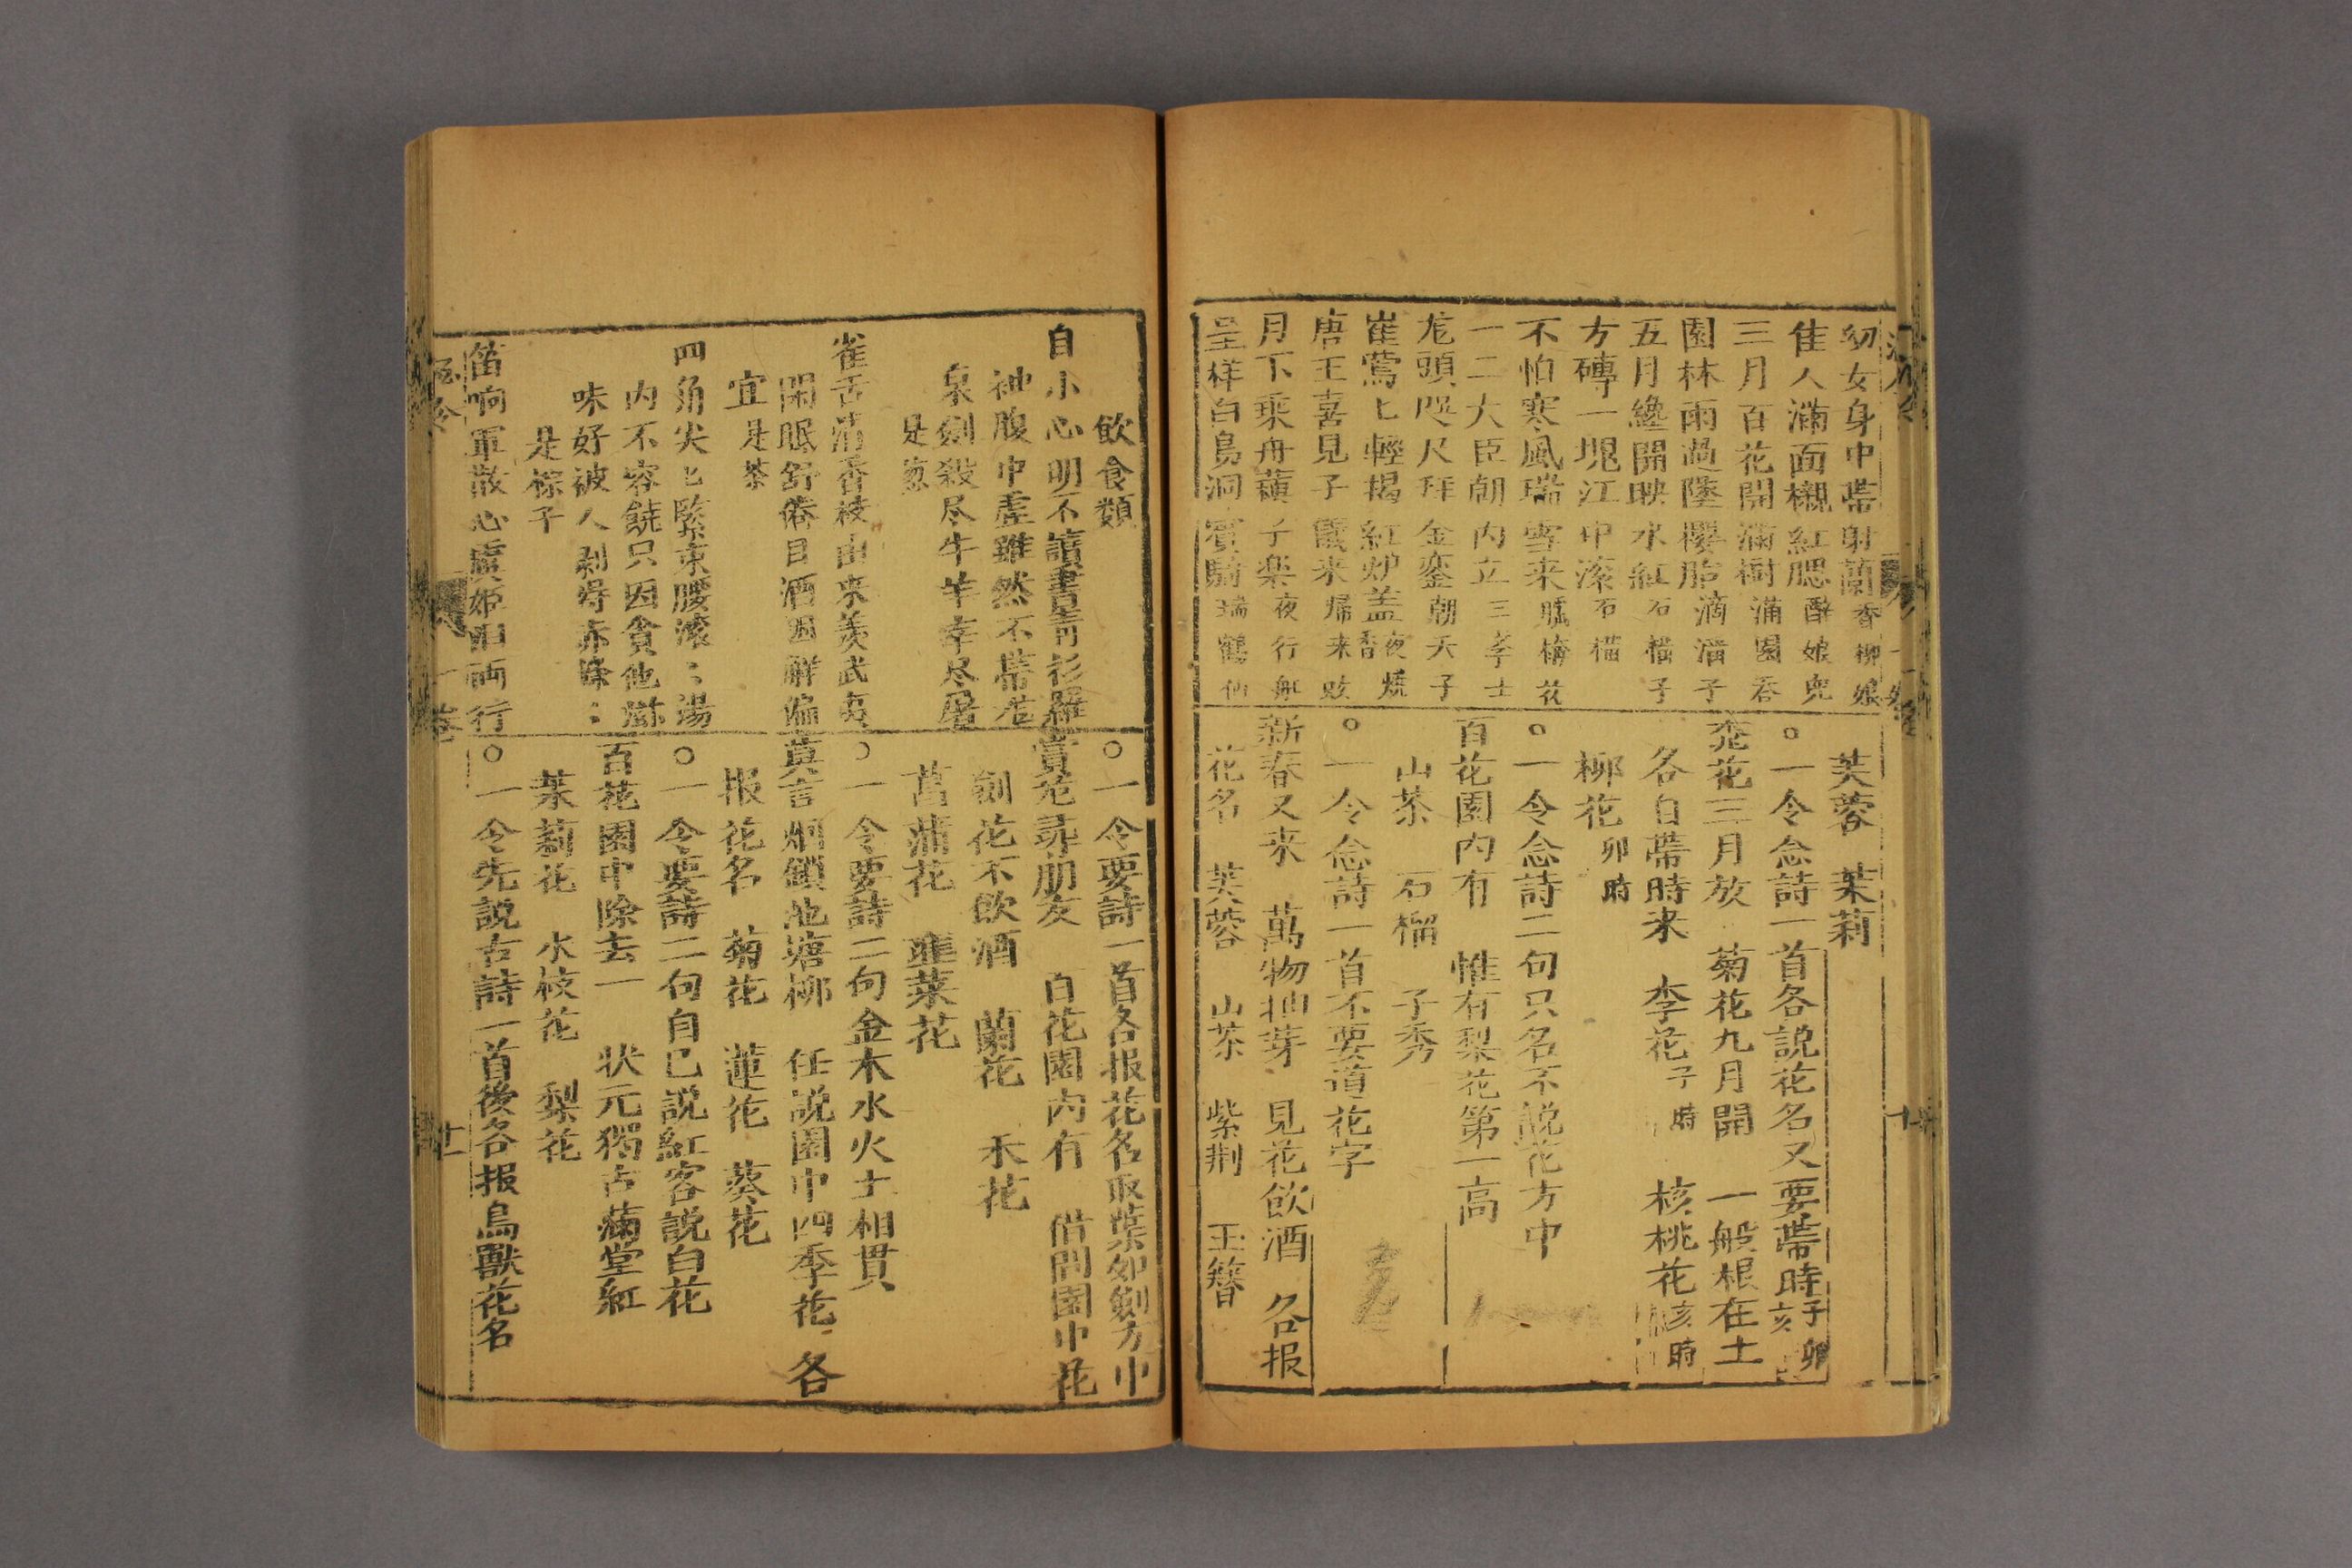 幼女身中帶射蘭香柳娘
佳人滿面襯紅腮醉娘兜
三月百花開滿樹滿園吞
園林雨過墜櫻胎滴溜子
五月纔開映水紅石橊子
方磚一塊江中滚石橊
不怕寒風瑞雪来臘梅花
一二大臣朝内立三孝士
龙頭咫尺拜金鑾朝天子
崔鶯匕輕揭紅炉盖夜燒香
唐王喜見子儀来歸来欵
月下乘舟蘋子楽夜行舡
呈样白鳥洞賓騎瑞鶴仙
芙蓉 茉莉
○一令念詩一首各説花名又要帶時子卯亥
桃花三月放 菊花九月開 一般根在土
各自帶時来 李花子時 核桃花亥時
柳花卯時
○一令念詩二句只名不説花方中
百花園内有 惟有梨花第一高
山茶 石榴 子秀
○一令念詩一首不要道花字
新春又来 萬物抽芽 見花飲酒 各报
花名 芙蓉 山茶 紫荆 玉簪
飲食類
自小心明不讀書青衫羅
袖腹中虛雖然不帶龙
泉劍殺尽牛羊幸尽屠
是葱
雀舌清香枝由来羡武夷
閑眠舒倦目酒困解偏
宜是茶
四角尖匕緊束腰滚：湯
内不容饒只因貪他
味好被人剥得赤條：
是粽子
笛响軍散心虞姬旧両行
○一令要詩一首各报花名取葉如劍方中
賞花尋朋友 百花園内有 借問園中花
劍花不飲酒 蘭花 禾花
菖蒲花 韮菜花
○一令要詩二句金木水火土相貫
莫言烟鎖池塘柳 任説園中四季花 各
报花名 菊花 蓮花 葵花
○一令要詩二句自已説紅客説白花
百花園中除去一 状元獨占滿堂紅
茉莉花 水枝花 梨花
○一令先説古詩一首後各报鳥獸花名
酒令 一卷 十
酒令 一卷 十一